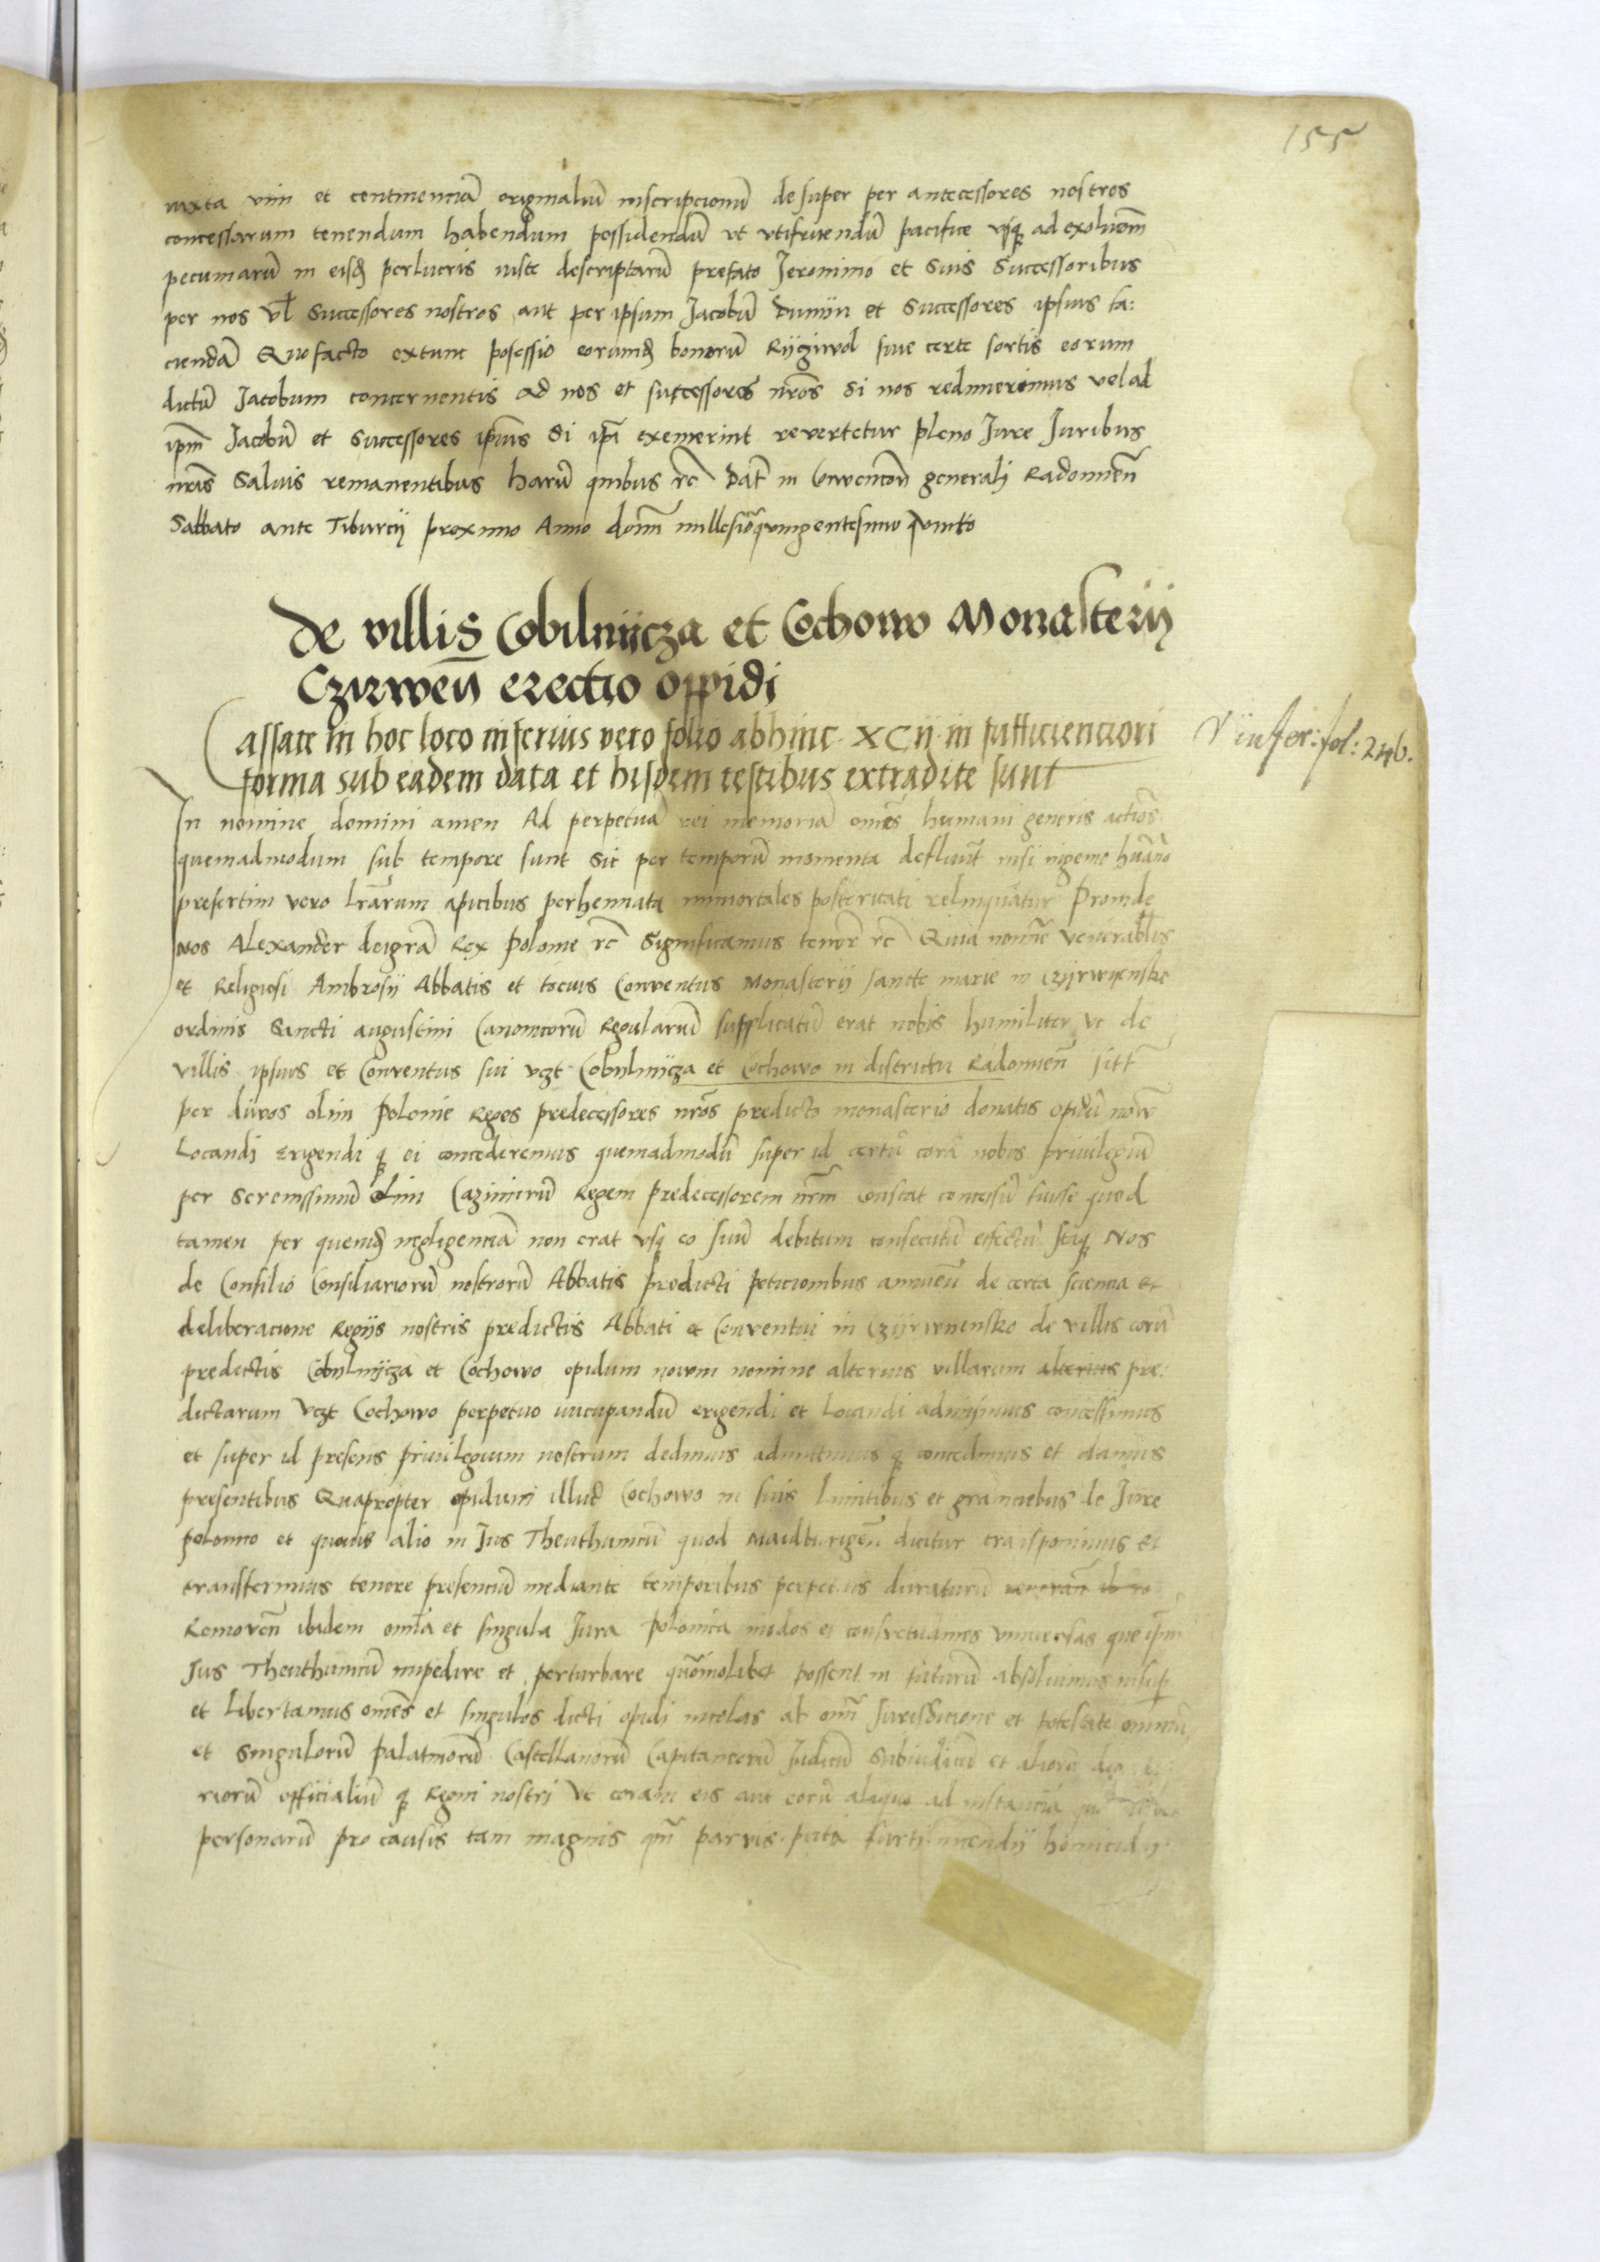 155
iuxta vim et continenciā originaliū inscripcionū desuper per antecessores nostros
concessarum tenendum habendum possidendū et vtifruendū pacifice vsq3 ad exolucōm
pecuniarū in eisđ perlucris iuste descriptarū prefato Jeronimo et suis Successoribus
per nos vl Successores nostros aut per ipsum Jacobū Dumijn et Successores ipsius fa:
ciendā Quo facto extunc possessio eorumđ bonorū Rijcziwol siue certe sortis eorum
dictū Jacobum concernentis ad nos et successores nrōs Si nos redimerimus vel ad
ipm̄ Jacobū et Successores ipius Si ipī exemerint revertetur pleno Jure Juribus
nrīs Saluis remanentibus harū quibus rc̄ Dat̄ in Convencōn generali Radomien̄
Sabbato ante Tiburcij proximo Anno domī millesiōquingentesimo quinto
De villis Cobilnijcza et Cochowo Monasterij
Czirwen̄ erectio oppidi
Cassate in hoc loco inferius vero folio abhinc XCij in sufficienciori
forma sub eadem data et hisdem testibus extradite sunt
V infer: fol: 246.
In nomine domini amen Ad perpetuā rei memoriā omēs humani generis actiōs
quemadmodum sub tempore sunt Sic per temporū momenta defluūt nisi ingenio huāno
presertim vero lrārum apicibus perhennata immortales posteritati relinquātur Proinde
Nos Alexander dei grā Rex Polonie rc̄ Significamus tenōr rc̄ Quia nomīe venerabīlis
et Religiosi Ambrosij Abbatis et tocius Conventus Monasterij sancte marie in Czijrwijensko
ordinis Sancti augustini Canonicorū Regularū supplicatū erat nobis humiliter vt de
villis ipsius et Conventus sui vczt Cobijlnijcza et Cochowo in districtu Radomien̄ sitt̄
per diuos olim Polonie Reges predecessores nrōs predicto monasterio donatis opidū nowū
Locandi Erigendi q3 ei concederemus quemadmodū super id certū corā nobis priuilegiū
per Serenissimū olim Cazimirū Regem predecessorem nrm̄ constat concessū fuisse quod
tamen per quemđ negligenciā non erat vsq3 eo suū debitum consecutū effectū Itaq3 Nos
de Consilio Consiliariorū nostrorū Abbatis predicti peticionibus annuen̄ de certa sciencia et
deliberacione Regijs nostris predictis Abbati et Conventui in Czijrwijensko de villis eorū
predictis Cobijlnijcza et Cochowo opidum nowm nomine alterius villarum alterius pre:
dictarum vczt Cochowo perpetuo nucupandū erigendi et Locandi admijsimus concessimus
et super id presens priuilegium nostrum dedimus admittimus q3 concedimus et damus
presentibus Quapropter opidum illud Cochowo in suis limitibus et graniciebus de Jure
polonico et quouis alio in Jus Theuthunicū quod Maidburgen̄ dicitur transponimus et
transferimus tenore presenciū mediante temporibus perpetuis duraturū
Removen̄ ibidem omīa et singula Jura Polonica modos et consvetudines vniuersas que ipm̄
Jus Theuthunicū impedire et perturbare quomōlibet possent in futurū absoluimus insuꝑ
et libertamus omēs et singulos dicti opidi incolas ab omī Jurisdictione et potestate omniū
et Singulorū Palatinorū Castellanorū Capitaneorū Judicū Subiudicū et aliorū
riorū officialiū q3 Regni nostri vt coram eis aut eorū aliquo ad instanciā
personarū pro causis tam magnis qm̄ parvis puta furti incendij homicidij